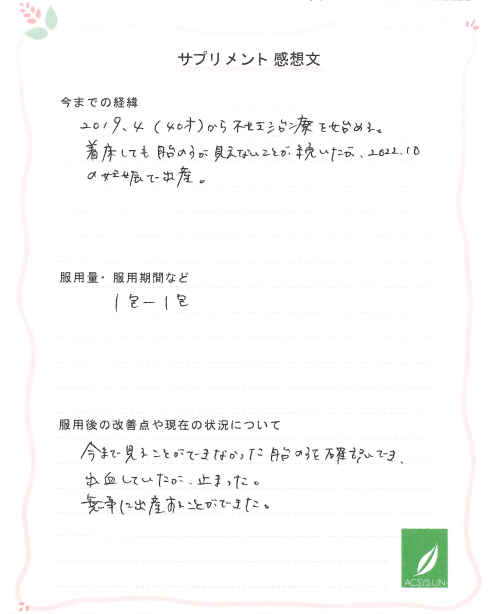 サプリメント 感想文
今までの経緯
2019.4 (40才)から不妊治療を始める。
着床しても胎のうが見えないことが続いたが、2022.10
の妊娠で出産。
服用量・服用期間など
1包ー1包
服用後の改善点や現在の状況について
今まで見ることができなかった胎のうを確認でき、
出血していたが、止まった。
無事に出産することができた。
ACSYSUN